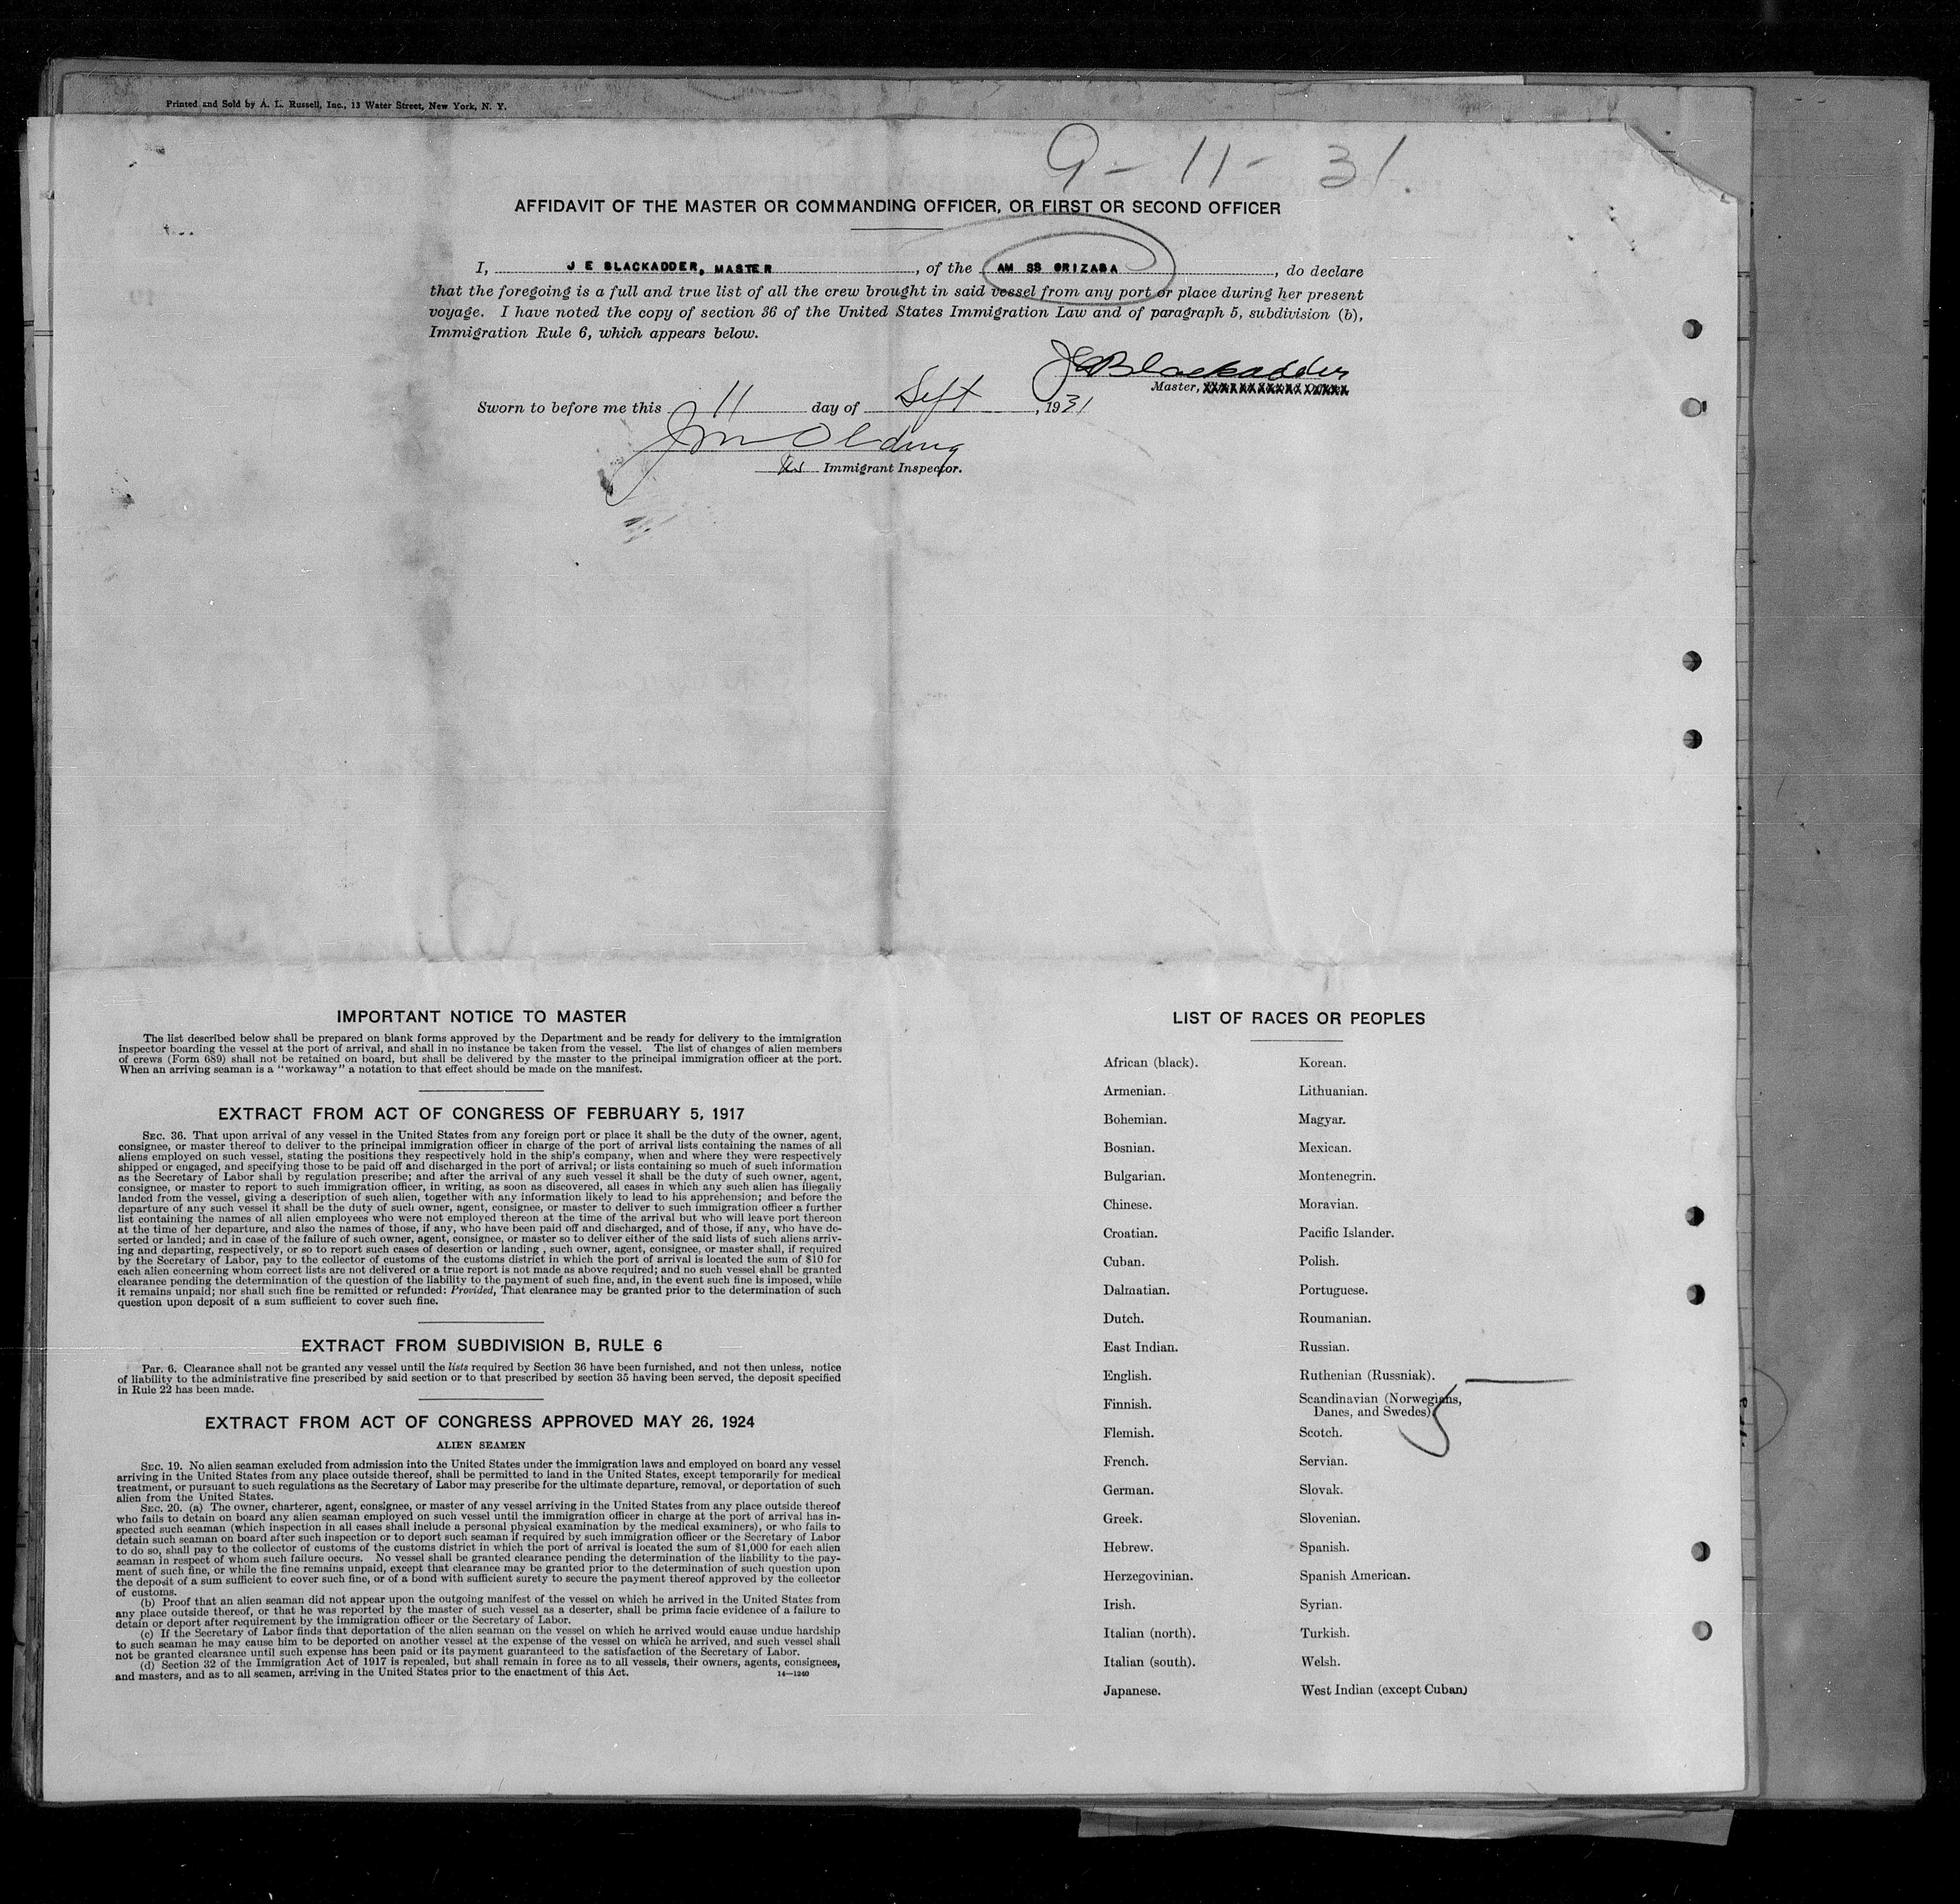 Printed and Sold by A. L. Russell, Inc., 13 Water Street, New York, N. Y.
9-11-31.
AFFIDAVIT OF THE MASTER OR COMMANDING OFFICER, OR FIRST OR SECOND OFFICER
I, J E BLACKADDER, MASTER, of the AM SS ORIZABA, do declare
that the foregoing is a full and true list of all the crew brought in said vessel from any port or place during her present
voyage. I have noted the copy of section 36 of the United States Immigration Law and of paragraph 5, subdivision (b),
Immigration Rule 6, which appears below.
JEBlackadder
Master,
Sworn to before me this 11 day of Sept, 1931
Jm Olding
Immigrant Inspector.
IMPORTANT NOTICE TO MASTER
The list described below shall be prepared on blank forms approved by the Department and be ready for delivery to the immigration
inspector boarding the vessel at the port of arrival, and shall in no instance be taken from the vessel. The list of changes of alien members
of crews (Form 689) shall not be retained on board, but shall be delivered by the master to the principal immigration officer at the port.
When an arriving seaman is a "workaway" a notation to that effect should be made on the manifest.
EXTRACT FROM ACT OF CONGRESS OF FEBRUARY 5, 1917
SEC. 36. That upon arrival of any vessel in the United States from any foreign port or place it shall be the duty of the owner, agent,
consignee, or master thereof to deliver to the principal immigration officer in charge of the port of arrival lists containing the names of all
aliens employed on such vessel, stating the positions they respectively hold in the ship's company, when and where they were respectively
shipped or engaged, and specifying those to be paid off and discharged in the port of arrival; or lists containing so much of such information
as the Secretary of Labor shall by regulation prescribe; and after the arrival of any such vessel it shall be the duty of such owner, agent,
consignee, or master to report to such immigration officer, in writing, as soon as discovered, all cases in which any such alien has illegally
landed from the vessel, giving a description of such alien, together with any information likely to lead to his apprehension; and before the
departure of any such vessel it shall be the duty of such owner, agent, consignee, or master to deliver to such immigration officer a further
list containing the names of all alien employees who were not employed thereon at the time of the arrival but who will leave port thereon
at the time of her departure, and also the names of those, if any, who have been paid off and discharged, and of those, if any, who have de-
serted or landed; and in case of the failure of such owner, agent, consignee, or master so to deliver either of the said lists of such aliens arriv-
ing and departing, respectively, or so to report such cases of desertion or landing , such owner, agent, consignee, or master shall, if required
by the Secretary of Labor, pay to the collector of customs of the customs district in which the port of arrival is located the sum of $10 for
each alien concerning whom correct lists are not delivered or a true report is not made as above required; and no such vessel shall be granted
clearance pending the determination of the question of the liability to the payment of such fine, and, in the event such fine is imposed, while
it remains unpaid; nor shall such fine be remitted or refunded: Provided, That clearance may be granted prior to the determination of such
question upon deposit of a sum sufficient to cover such fine.
EXTRACT FROM SUBDIVISION B, RULE 6
Par. 6. Clearance shall not be granted any vessel until the lists required by Section 36 have been furnished, and not then unless, notice
of liability to the administrative fine prescribed by said section or to that prescribed by section 35 having been served, the deposit specified
in Rule 22 has been made.
EXTRACT FROM ACT OF CONGRESS APPROVED MAY 26, 1924
ALIEN SEAMEN
SEC. 19. No alien seaman excluded from admission into the United States under the immigration laws and employed on board any vessel
arriving in the United States from any place outside thereof, shall be permitted to land in the United States, except temporarily for medical
treatment, or pursuant to such regulations as the Secretary of Labor may prescribe for the ultimate departure, removal, or deportation of such
alien from the United States.
SEC. 20. (a) The owner, charterer, agent, consignee, or master of any vessel arriving in the United States from any place outside thereof
who fails to detain on board any alien seaman employed on such vessel until the immigration officer in charge at the port of arrival has in-
spected such seaman (which inspection in all cases shall include a personal physical examination by the medical examiners), or who fails to
detain such seaman on board after such inspection or to deport such seaman if required by such immigration officer or the Secretary of Labor
to do so, shall pay to the collector of customs of the customs district in which the port of arrival is located the sum of $1,000 for each alien
seaman in respect of whom such failure occurs. No vessel shall be granted clearance pending the determination of the liability to the pay-
ment of such fine, or while the fine remains unpaid, except that clearance may be granted prior to the determination of such question upon
the deposit of a sum sufficient to cover such fine, or of a bond with sufficient surety to secure the payment thereof approved by the collector
of customs.
(b) Proof that an alien seaman did not appear upon the outgoing manifest of the vessel on which he arrived in the United States from
any place outside thereof, or that he was reported by the master of such vessel as a deserter, shall be prima facie evidence of a failure to
detain or deport after requirement by the immigration officer or the Secretary of Labor.
(c) If the Secretary of Labor finds that deportation of the alien seaman on the vessel on which he arrived would cause undue hardship
to such seaman he may cause him to be deported on another vessel at the expense of the vessel on which he arrived, and such vessel shall
not be granted clearance until such expense has been paid or its payment guaranteed to the satisfaction of the Secretary of Labor.
(d) Section 32 of the Immigration Act of 1917 is repealed, but shall remain in force as to all vessels, their owners, agents, consignees,
and masters, and as to all seamen, arriving in the United States prior to the enactment of this Act. 14—1240
LIST OF RACES OR PEOPLES
African (black). Korean.
Armenian. Lithuanian.
Bohemian. Magyar.
Bosnian. Mexican.
Bulgarian. Montenegrin.
Chinese. Moravian.
Croatian. Pacific Islander.
Cuban. Polish.
Dalmatian. Portuguese.
Dutch. Roumanian.
East Indian. Russian.
English. Ruthenian (Russniak).
Finnish. Scandinavian (Norwegians,
Danes, and Swedes).
Flemish. Scotch.
French. Servian.
German. Slovak.
Greek. Slovenian.
Hebrew. Spanish.
Herzegovinian. Spanish American.
Irish. Syrian.
Italian (north). Turkish.
Italian (south). Welsh.
Japanese. West Indian (except Cuban)